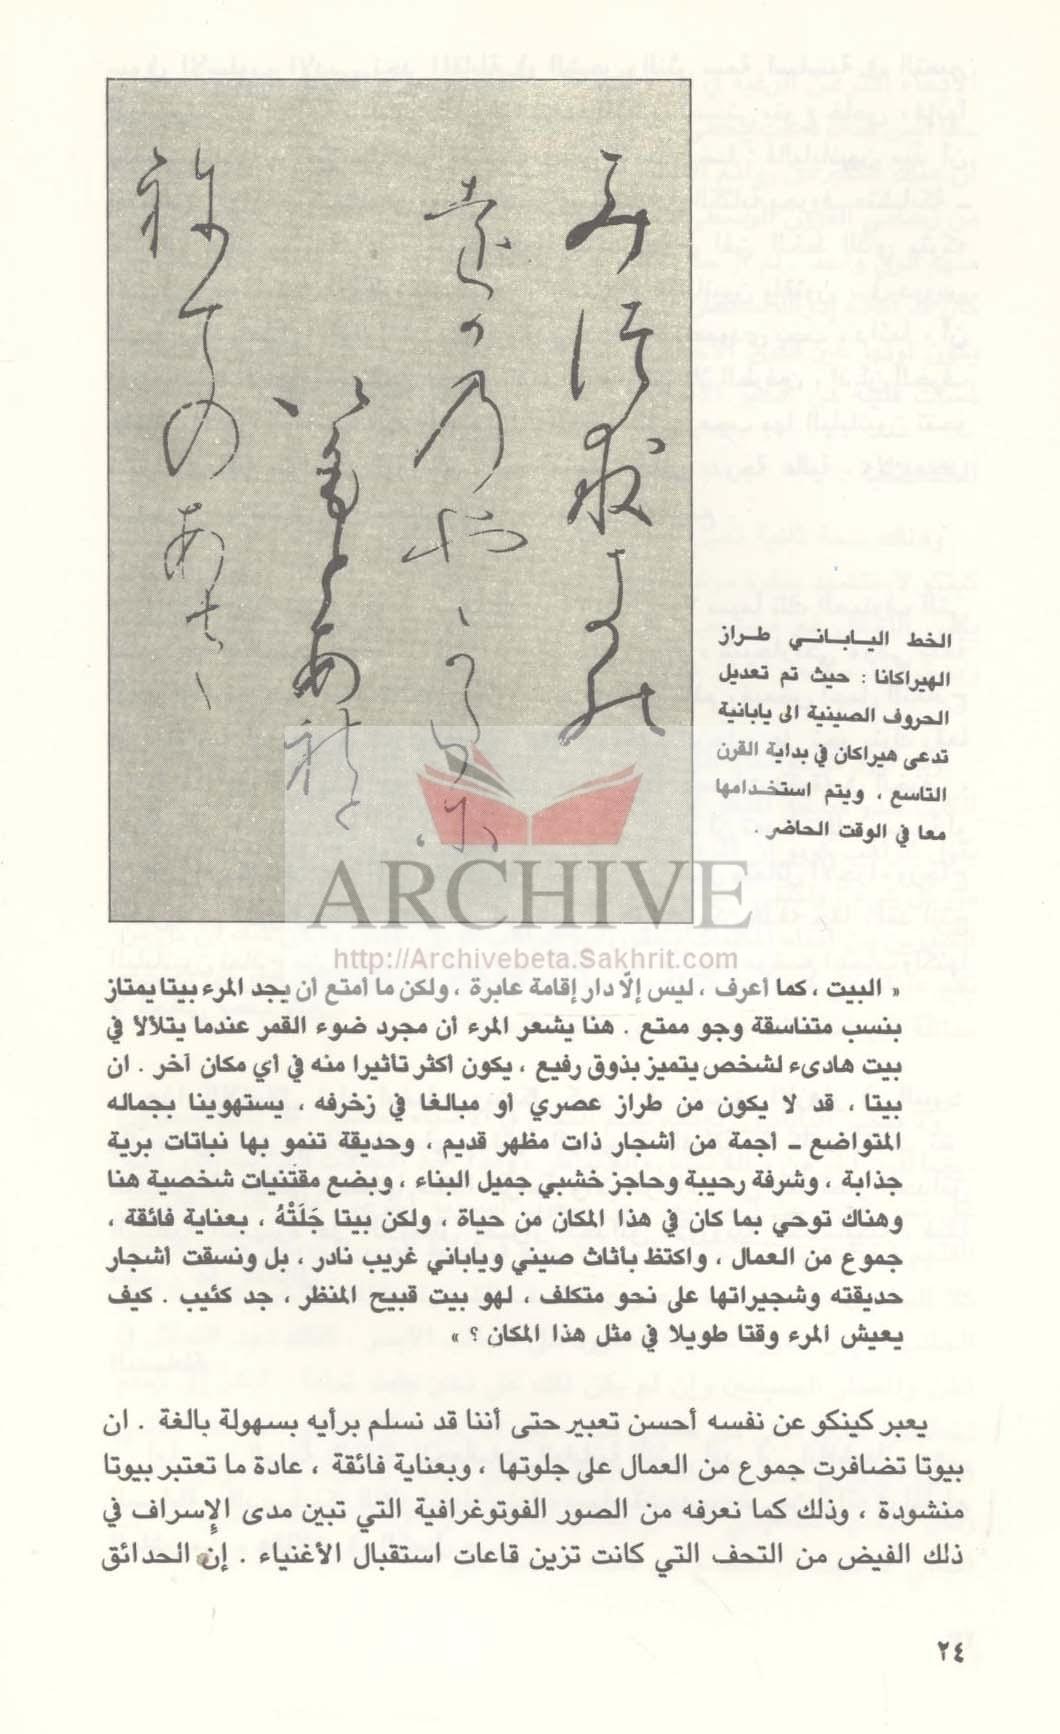 الخط اليـابـانـي طـراز
الهيراكانا : حيث تم تعديل
الحروف الصينية الى يابانية
تدعى هيراكان في بداية القرن
التاسع ، ويتم استخـدامها
معا في الوقت الحاضر .
ARCHIVE
http://Archivebeta.Sakhrit.com
« البيت ، كما أعرف ، ليس إلّا دار إقامة عابرة ، ولكن ما أمتع أن يجد المرء بيتا يمتاز
بنسب متناسقة وجو ممتع . هنا يشعر المرء أن مجرد ضوء القمر عندما يتلألأ في
بيت هادىء لشخص يتميز بذوق رفيع ، يكون أكثر تأثيرا منه في أي مكان آخر . ان
بيتا ، قد لا يكون من طراز عصري أو مبالغا في زخرفه ، يستهوينا بجماله
المتواضع ــ أجمة من أشجار ذات مظهر قديم ، وحديقة تنمو بها نباتات برية
جذابة ، وشرفة رحيبة وحاجز خشبي جميل البناء ، وبضع مقتنيات شخصية هنا
وهناك توحي بما كان في هذا المكان من حياة ، ولكن بيتا جَلَتْهُ ، بعناية فائقة ،
جموع من العمال ، واكتظ بأثاث صيني وياباني غريب نادر ، بل ونسقت أشجار
حديقته وشجيراتها على نحو متكلف ، لهو بيت قبيح المنظر ، جد كئيب . كيف
يعيش المرء وقتا طويلا في مثل هذا المكان ؟ »
يعبر كينكو عن نفسه أحسن تعبير حتى أننا قد نسلم برأيه بسهولة بالغة . ان
بيوتا تضافرت جموع من العمال على جلوتها ، وبعناية فائقة ، عادة ما تعتبر بيوتا
منشودة ، وذلك كما نعرفه من الصور الفوتوغرافية التي تبين مدى الإسراف في
ذلك الفيض من التحف التي كانت تزين قاعات استقبال الأغنياء . إن الحدائق
٢٤